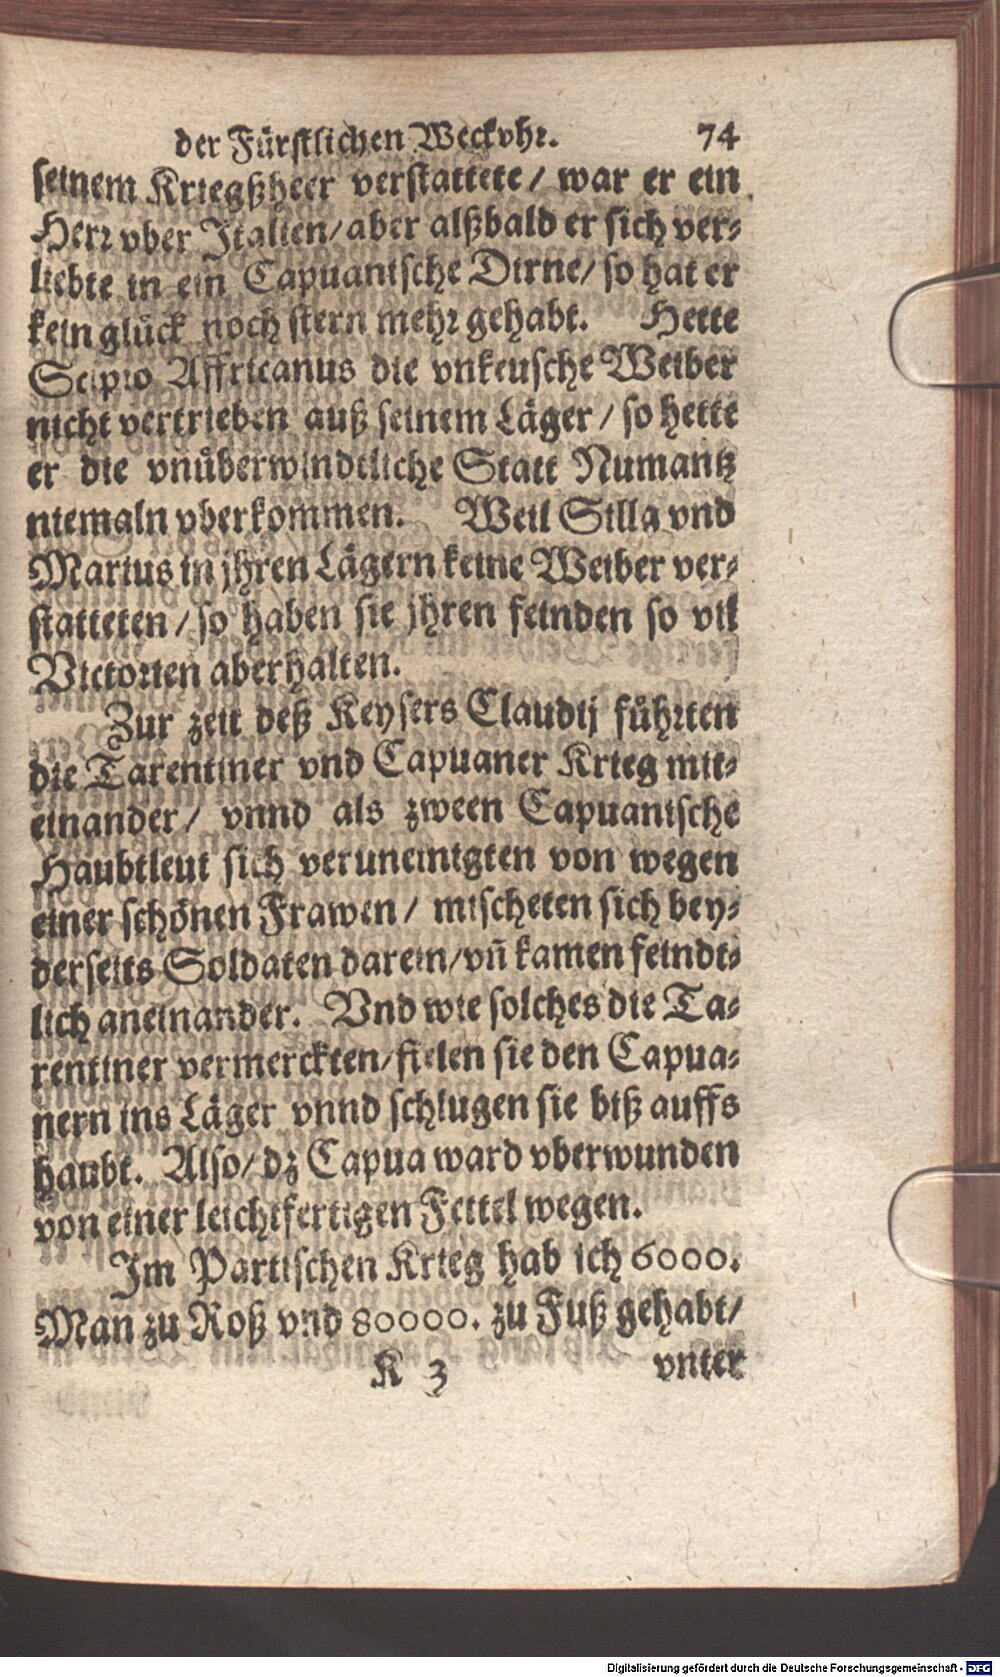 der Fürstlichen Weckvhr. 74
seinem Kriegßheer verstattete / war er ein
Herr vber Italien / aber alßbald er sich ver-
liebte in ein Capuanische Dirne / so hat er
kein glück noch stern mehr gehabt. Hette
Scipio Affricanus die vnkeusche Weiber
nicht vertrieben auß seinem Läger / so hette
er die vnüberwindtliche Statt Numantz
niemaln vberkommen. Weil Silla vnd
Marius in jhren Lägern keine Weiber ver-
statteten / so haben sie jhren feinden so vil
Victorien aberhalten.
Zur zeit deß Keysers Claudij führten
die Tarentiner vnd Capuaner Krieg mit-
einander / vnnd als zween Capuanische
Haubtleut sich veruneinigten von wegen
einer schönen Frawen / mischeten sich bey-
derseits Soldaten darein / vñ kamen feindt-
lich aneinander. Vnd wie solches die Ta-
rentiner vermerckten / fielen sie den Capua-
nern ins Läger vnnd schlugen sie biß auffs
haubt. Also / dz Capua ward vberwunden
von einer leichtfertigen Fettel wegen.
Im Partischen Krieg hab ich 6000.
Man zu Roß vnd 80000. zu Fuß gehabt /
K 3 vnter
Digitalisierung gefördert durch die Deutsche Forschungsgemeinschaft - DFG